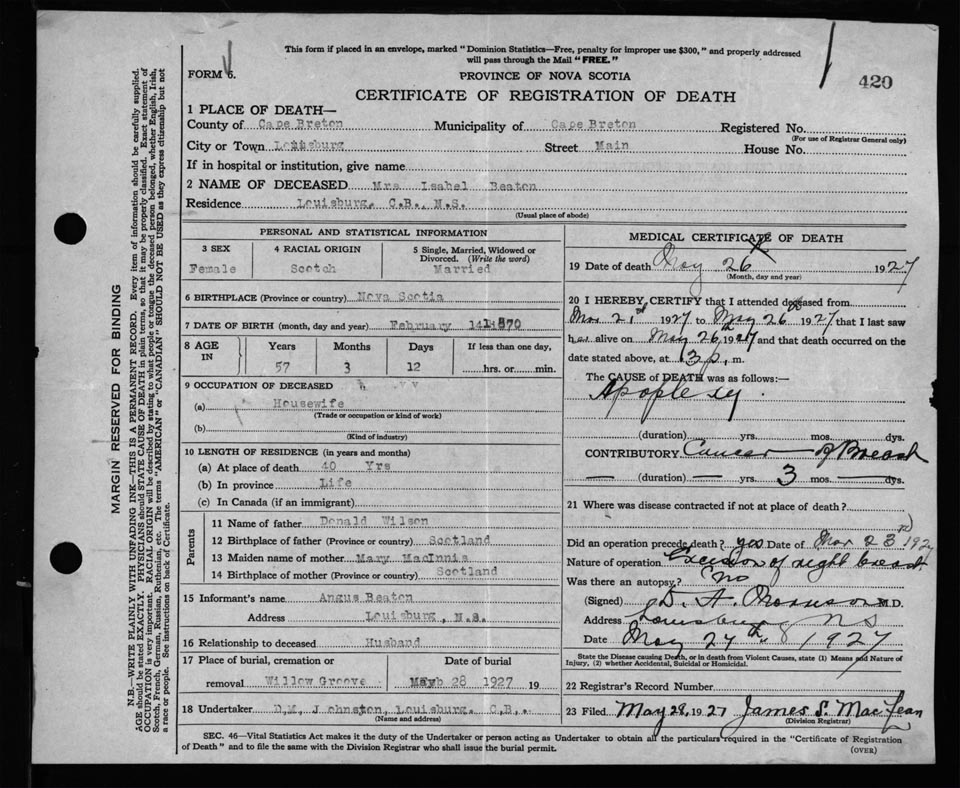 This form if placed in an envelope, marked "Dominion Statistics—Free, penalty for improper use $300," and properly addressed
will pass through the Mail "FREE."
FORM 6.
PROVINCE OF NOVA SCOTIA
420
CERTIFICATE OF REGISTRATION OF DEATH
1 PLACE OF DEATH—
County of Cape Breton Municipality of Cape Breton Registered No.
(For use of Registrar General only)
City or Town Louisburg Street Main House No.
If in hospital or institution, give name
2 NAME OF DECEASED Mrs Isabel Beaton
Residence Louisburg. C.B., N.S.
(Usual place of abode)
PERSONAL AND STATISTICAL INFORMATION
3 SEX 4 RACIAL ORIGIN 5 Single, Married, Widowed or
Divorced. (Write the word)
Female Scotch Married
6 BIRTHPLACE (Province or country) Nova Scotia
7 DATE OF BIRTH (month, day and year) February 14 1870
8 AGE IN Years Months Days If less than one day,
57 3 12 hrs. or min.
9 OCCUPATION OF DECEASED
(a) Housewife
(Trade or occupation or kind of work)
(b)
(Kind of industry)
10 LENGTH OF RESIDENCE (in years and months)
(a) At place of death 40 Yrs
(b) In province Life
(c) In Canada (if an immigrant)
Parents
11 Name of father Donald Wilson
12 Birthplace of father (Province or country) Scotland
13 Maiden name of mother Mary MacInnis
14 Birthplace of mother (Province or country) Scotland
15 Informant's name Angus Beaton
Address Louisburg, N.S.
16 Relationship to deceased Husband
17 Place of burial, cremation or Date of burial
removal Willow Groove May 28 1927 19
18 Undertaker D.M. Johnston, Louisburg. C.B..
(Name and address)
MEDICAL CERTIFICATE OF DEATH
19 Date of death May 26 1927
(Month, day and year)
20 I HEREBY CERTIFY that I attended deceased from
Mar 21st 1927 to May 26 1927 that I last saw
her alive on May 26th, 1927 and that death occurred on the
date stated above, at 3 p. m.
The CAUSE of DEATH was as follows:—
Apoplexy.
(duration) yrs. mos. dys.
CONTRIBUTORY Cancer of Breast
— (duration) — yrs. 3 mos. — dys.
21 Where was disease contracted if not at place of death?
Did an operation precede death? yes Date of Mar 23rd 1927
Nature of operation Excision of right breast
Was there an autopsy? No
(Signed) M.D.
Address Louisburg NS
Date May 27th 1927
State the Disease causing Death, or in death from Violent Causes, state (1) Means and Nature of
Injury, (2) whether Accidental, Suicidal or Homicidal.
22 Registrar's Record Number
23 Filed May 28, 1927 James S. MacLean
(Division Registrar)
SEC. 46—Vital Statistics Act makes it the duty of the Undertaker or person acting as Undertaker to obtain all the particulars required in the "Certificate of Registration
of Death" and to file the same with the Division Registrar who shall issue the burial permit.
(OVER)
MARGIN RESERVED FOR BINDING
N.B.—WRITE PLAINLY WITH UNFADING INK—THIS IS A PERMANENT RECORD. Every item of information should be carefully supplied.
AGE should be stated EXACTLY. PHYSICIANS should STATE CAUSE OF DEATH in plain terms, so that it may be properly classified. Exact statement of
OCCUPATION is very important. RACIAL ORIGIN will be described by stating to what people or tongue the deceased person belonged, whether English, Irish,
Scotch, French, German, Russian, Ruthenian, etc. The terms "AMERICAN" or "CANADIAN" SHOULD NOT BE USED as they express citizenship but not
a race or people. See instructions on back of Certificate.